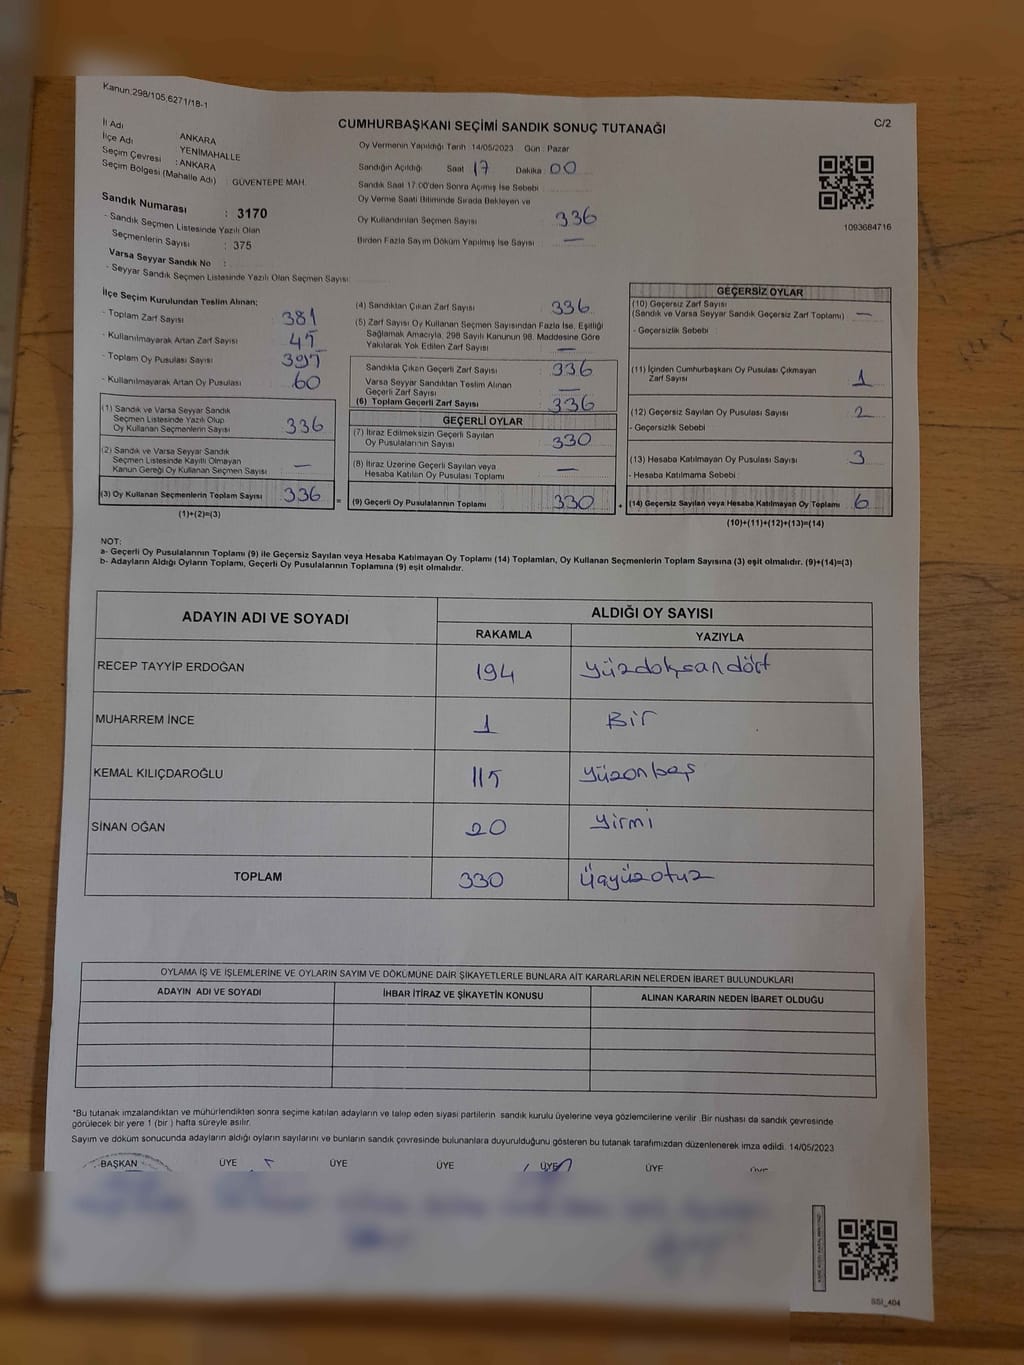 Kanun:298/105 6271/18-1
CUMHURBAŞKANI SEÇİMİ SANDIK SONUÇ TUTANAĞI
C/2
İl Adı : ANKARA
İlçe Adı : YENİMAHALLE
Seçim Çevresi : ANKARA
Seçim Bölgesi (Mahalle Adı) : GÜVENTEPE MAH.
Sandık Numarası : 3170
- Sandık Seçmen Listesinde Yazılı Olan
Seçmenlerin Sayısı : 375
Varsa Seyyar Sandık No :
- Seyyar Sandık Seçmen Listesinde Yazılı Olan Seçmen Sayısı:
Oy Vermenin Yapıldığı Tarih : 14/05/2023 Gün : Pazar
Sandığın Açıldığı Saat 17 Dakika 00
Sandık Saat 17:00'den Sonra Açılmış İse Sebebi
Oy Verme Saati Bitiminde Sırada Bekleyen ve
Oy Kullandırılan Seçmen Sayısı 336
Birden Fazla Sayım Döküm Yapılmış İse Sayısı : —
1093684716
İlçe Seçim Kurulundan Teslim Alınan;
- Toplam Zarf Sayısı 381
- Kullanılmayarak Artan Zarf Sayısı 45
- Toplam Oy Pusulası Sayısı 395
- Kullanılmayarak Artan Oy Pusulası 60
(1) Sandık ve Varsa Seyyar Sandık
Seçmen Listesinde Yazılı Olup
Oy Kullanan Seçmenlerin Sayısı 336
(2) Sandık ve Varsa Seyyar Sandık
Seçmen Listesinde Kayıtlı Olmayan
Kanun Gereği Oy Kullanan Seçmen Sayısı —
(3) Oy Kullanan Seçmenlerin Toplam Sayısı 336
(1)+(2)=(3)
(4) Sandıktan Çıkan Zarf Sayısı 336
(5) Zarf Sayısı Oy Kullanan Seçmen Sayısından Fazla İse, Eşitliği
Sağlamak Amacıyla, 298 Sayılı Kanunun 98. Maddesine Göre
Yakılarak Yok Edilen Zarf Sayısı —
Sandıkta Çıkan Geçerli Zarf Sayısı 336
Varsa Seyyar Sandıktan Teslim Alınan
Geçerli Zarf Sayısı —
(6) Toplam Geçerli Zarf Sayısı 336
GEÇERLİ OYLAR
(7) İtiraz Edilmeksizin Geçerli Sayılan
Oy Pusulalarının Sayısı 330
(8) İtiraz Üzerine Geçerli Sayılan veya
Hesaba Katılan Oy Pusulası Toplamı —
= (9) Geçerli Oy Pusulalarının Toplamı 330
GEÇERSİZ OYLAR
(10) Geçersiz Zarf Sayısı
(Sandık ve Varsa Seyyar Sandık Geçersiz Zarf Toplamı) —
- Geçersizlik Sebebi :
(11) İçinden Cumhurbaşkanı Oy Pusulası Çıkmayan
Zarf Sayısı 1
(12) Geçersiz Sayılan Oy Pusulası Sayısı 2
- Geçersizlik Sebebi :
(13) Hesaba Katılmayan Oy Pusulası Sayısı 3
- Hesaba Katılmama Sebebi :
+ (14) Geçersiz Sayılan veya Hesaba Katılmayan Oy Toplamı 6
(10)+(11)+(12)+(13)=(14)
NOT:
a- Geçerli Oy Pusulalarının Toplamı (9) ile Geçersiz Sayılan veya Hesaba Katılmayan Oy Toplamı (14) Toplamları, Oy Kullanan Seçmenlerin Toplam Sayısına (3) eşit olmalıdır. (9)+(14)=(3)
b- Adayların Aldığı Oyların Toplamı, Geçerli Oy Pusulalarının Toplamına (9) eşit olmalıdır.
ADAYIN ADI VE SOYADI ALDIĞI OY SAYISI
RAKAMLA YAZIYLA
RECEP TAYYİP ERDOĞAN 194 Yüzdoksandört
MUHARREM İNCE 1 Bir
KEMAL KILIÇDAROĞLU 115 Yüzonbeş
SİNAN OĞAN 20 Yirmi
TOPLAM 330 Üçyüzotuz
OYLAMA İŞ VE İŞLEMLERİNE VE OYLARIN SAYIM VE DÖKÜMÜNE DAİR ŞİKAYETLERLE BUNLARA AİT KARARLARIN NELERDEN İBARET BULUNDUKLARI
ADAYIN ADI VE SOYADI İHBAR İTİRAZ VE ŞİKAYETİN KONUSU ALINAN KARARIN NEDEN İBARET OLDUĞU
*Bu tutanak imzalandıktan ve mühürlendikten sonra seçime katılan adayların ve talep eden siyasi partilerin sandık kurulu üyelerine veya gözlemcilerine verilir. Bir nüshası da sandık çevresinde
görülecek bir yere 1 (bir) hafta süreyle asılır.
Sayım ve döküm sonucunda adayların aldığı oyların sayılarını ve bunların sandık çevresinde bulunanlara duyurulduğunu gösteren bu tutanak tarafımızdan düzenlenerek imza edildi. 14/05/2023
BAŞKAN ÜYE ÜYE ÜYE ÜYE ÜYE ÜYE
SSI_404